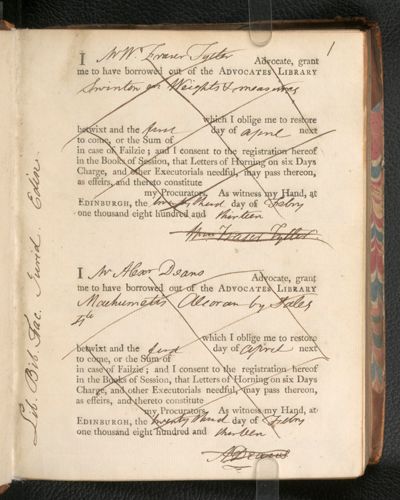 1
I Mr Wm. Fraser Tytler Advocate, grant
me to have borrowed out of the ADVOCATES LIBRARY
Swinton on Weights & measures
which I oblige me to restore
betwixt and the first day of April next
to come, or the Sum of
in case of Failzie; and I consent to the registration hereof
in the Books of Session, that Letters of Horning on six Days
Charge, and other Executorials needful, may pass thereon,
as effeirs, and thereto constitute
my Procurators. As witness my Hand, at
EDINBURGH, the twenty third day of Febry
one thousand eight hundred and thirteen
Wm Fraser Tytler
I Mr Alexr Deans Advocate, grant
me to have borrowed out of the ADVOCATES LIBRARY
Machumetis Alcoran by Sales
4to
which I oblige me to restore
betwixt and the first day of April next
to come, or the Sum of
in case of Failzie; and I consent to the registration hereof
in the Books of Session, that Letters of Horning on six Days
Charge, and other Executorials needful, may pass thereon,
as effeirs, and thereto constitute
my Procurators. As witness my Hand, at
EDINBURGH, the twenty third day of Febry
one thousand eight hundred and thirteen
A Deans
Lib. Bib. Fac. Jurid. Edin.